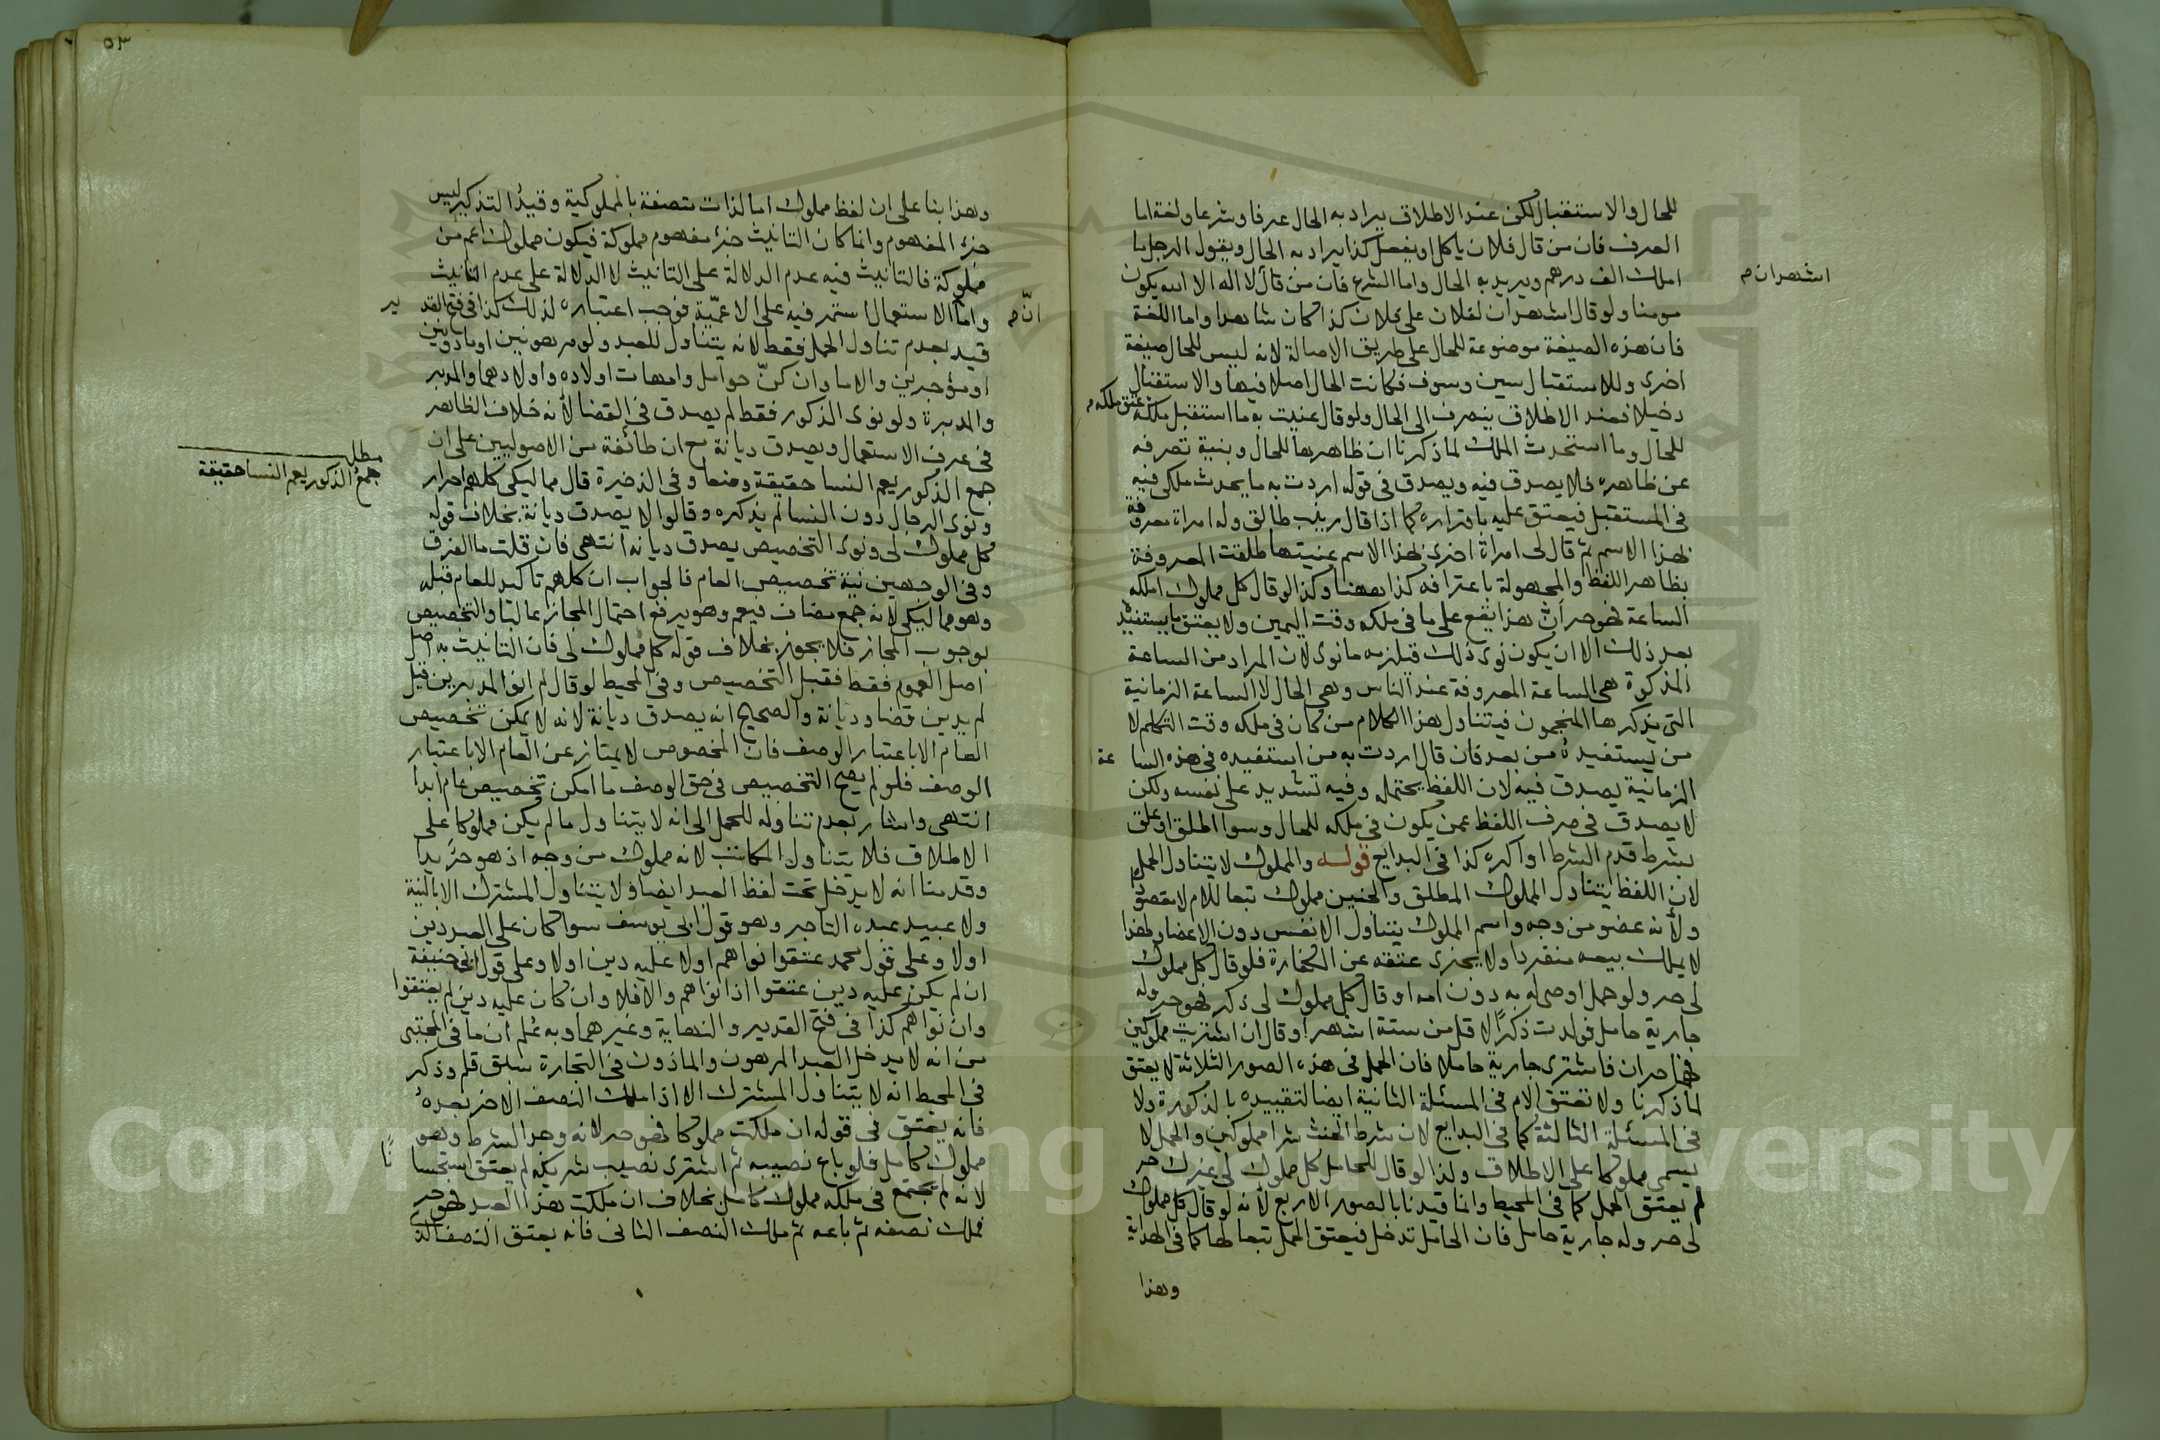 للحال والاستقبال لكن عند الاطلاق يراد به الحال عرفا وشرعا ولغة اما
العرف فان من قال فلان ياكل او يفعل كذا يراد به الحال ويقول الرجل انا
املك الف درهم ويريد به الحال واما الشرع فان من قال لا اله الا الله يكون
اشهد ان م
مومنا ولو قال اشهد ان لفلان على فلان كذا كان شاهدا واما اللغة
فان هذه الصيغة موضوعة للحال على طريق الاصالة لانه ليس للحال صيغة
اخرى وللاستقبال سين وسوف فكانت الحال اصلا فيها والاستقبال
دخيلا فعند الاطلاق ينصرف الى الحال ولو قال عنيت به ما استقبل ملكه
عتق ملكه م
للحال وما استحدث الملك لما ذكرنا ان ظاهرها للحال وبنية تصرفه
عن ظاهره فلا يصدق فيه ويصدق في قوله اردت به ما يحدث ملكي فيه
في المستقبل فيعتق عليه باقراره كما اذا قال زينب طالق وله امراة معروفة
بهذا الاسم ثم قال لي امراة اخرى بهذا الاسم عنيتها طلقت المعروفة
بظاهر اللفظ والمجهولة باعترافه كذا ههنا وكذا لو قال كل مملوك املكه
الساعة فهو حر ان هذا يقع على ما في ملكه وقت اليمين ولا يعتق ما يستفيد
بعد ذلك الا ان يكون نوى ذلك فيلزمه ما نوى لان المراد من الساعة
المذكورة هي الساعة المعروفة عند الناس وهي الحال لا الساعة الزمانية
التي يذكرها المنجمون فيتناول هذا الكلام من كان في ملكه وقت التكلم لا
من يستفيده من بعد فان قال اردت به من استفيده في هذه الساعة
الزمانية يصدق فيه لان اللفظ يحتمله وفيه تشديد على نفسه ولكن
لا يصدق في صرف اللفظ عمن يكون في ملكه للحال وسوا اطلق او علق
بشرط قدم الشرط او اخره كذا في البدايع قوله والمملوك لا يتناول الحمل
لان اللفظ يتناول المملوك المطلق والجنين مملوك تبعا للام لا مقصودا
ولانه عضو من وجه واسم المملوك يتناول الانفس دون الاعضا ولهذا
لا يملك بيعه منفردا ولا يجزى عتقه عن الكفارة فلو قال كل مملوك
لي حر ولو حمل اوصى له به دون امه او قال كل مملوك لي ذكر فهو حر وله
جارية حامل فولدت ذكرا لاقل من ستة اشهر او قال ان اشتريت مملوكين
فهما حران فاشترى جارية حاملا فان الحمل في هذه الصور الثلاثة لا يعتق
لما ذكرنا ولا تعتق الام في المسئلة الثانية ايضا لتقييده بالذكورة ولا
في المسئلة الثالثة كما في البدايع لان شرط الحنث شرا مملوكين والحمل لا
يسمى مملوكا على الاطلاق وكذا لو قال للحامل كل مملوك لي غيرك حر
لم يعتق الحمل كما في المحيط وانما قيدنا بالصور الاربع لانه لو قال كل مملوك
لي حر وله جارية حامل فان الحامل تدخل فيعتق الحمل تبعا لها كما في الهداية
وهذا
٥٣
وهذا بنا على ان لفظ مملوك اما لذات متصفة بالمملوكية وقيد التذكير ليس
جزء المفهوم وانما كان التانيث جزء مفهوم مملوكة فيكون مملوك اعم من
مملوكة فالتانيث فيه عدم الدلالة على التانيث لا الدلالة على عدم التانيث
واما الاستعمال استمر فيه على الاعمية فوجب اعتباره لذلك كذا في فتح القد
ير
ان م
قيد بعدم تناول الحمل فقط لانه يتناول للعبد ولو مرهونين او ماذونين
او مؤجرين والاما وان كن حوامل وامهات اولاده واولادهما والمدبر
والمدبرة ولو نوى الذكور فقط لم يصدق في القضا لانه خلاف الظاهر
في عرف الاستعمال ويصدق ديانة مع ان طائفة من الاصوليين على ان
مطلب
جمع الذكور يعم النسا حقيقة
جمع الذكور يعم النسا حقيقة وضعا وفي الذخيرة قال مماليكي كلهم احرار
ونوى الرجال دون النسا لم يذكره وقالوا لا يصدق ديانة بخلاف قوله
كل مملوك لي ونوى التخصيص يصدق ديانة انتهى فان قلت ما الفرق
وفي الوجهين نية تخصيص العام فالجواب ان كلهم تاكيد للعام قبله
وهو مماليكي لانه جمع مضاف فيعم وهو يرفع احتمال المجاز غالبا والتخصيص
بوجوب المجاز فلا يجوز بخلاف قوله كل مملوك لي فان الثابت به اصل
اصل العموم فقط فقبل التخصيص وفي المحيط لو قال لم انو المدبرين قيل
لم يدين قضا وديانة والصحيح انه يصدق ديانة لانه لا يمكن تخصيص
العام الا باعتبار الوصف فان المخصوص لا يمتاز عن العام الا باعتبار
الوصف فلو لم يصح التخصيص في حق الوصف ما امكن تخصيص عام ابدا
انتهى واشار بعدم تناوله للحمل الى انه لا يتناول ما لم يكن مملوكا على
الاطلاق فلا يتناول المكاتب لانه مملوك من وجه اذ هو حر يدا
وقدمنا انه لا يدخل تحت لفظ العبد ايضا ولا يتناول المشترك الا بالنية
ولا عبيد عبده التاجر وهو قول ابي يوسف سوا كان على العبد دين
اولا وعلى قول محمد عتقوا نواهم اولا عليه دين اولا وعلى قول ابي حنيفة
ان لم يكن عليه دين عتقوا اذا نواهم والا فلا وان كان عليه دين لم يعتقوا
وان نواهم كذا في فتح القدير والنهاية وغيرهما وبه علم ان ما في المجتبى
من انه لا يدخل العبد المرهون والماذون في التجارة سبق قلم وذكر
في المحيط انه لا يتناول المشترك الا اذا ملك النصف الاخر بعده
فانه يعتق في قوله ان ملكت مملوكا فهو حر لانه وجد الشرط وهو
مملوك كامل فلو باع نصيبه ثم اشترى نصيب شريكه لم يعتق استحسا
نا
لانه لم يجتمع في ملكه مملوك كامل بخلاف ان ملكت هذا العبد فهو حر
فملك نصفه ثم باعه ثم ملك النصف الثاني فانه يعتق النصف الذي